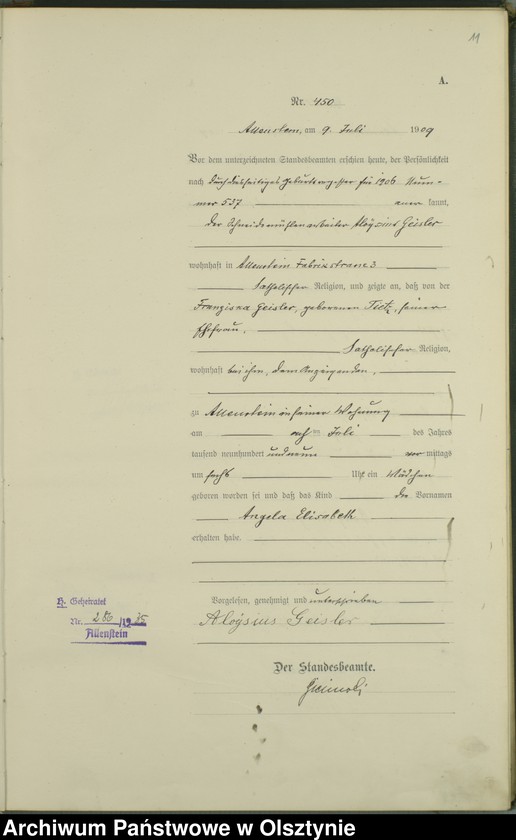 11
A.
Nr. 450
Allenstein, am 9. Juli 1909
Vor dem unterzeichneten Standesbeamten erschien heute, der Persönlichkeit
nach durch diesseitiges Geburtsregister für 1906 Num-
mer 537 kannt,
der Schneidemühlenarbeiter Aloysius Geisler
wohnhaft in Allenstein Fabrikstrasse 3
katholischer Religion, und zeigte an, daß von der
Franziska Geisler, geborenen Tietz, seiner
Ehefrau,
katholischer Religion,
wohnhaft bei ihm, dem Anzeigenden,
zu Allenstein in seiner Wohnung
am Juli des Jahres
tausend neunhundert und neun vormittags
um sechs Uhr ein Mädchen
geboren worden sei und daß das Kind die Vornamen
Angela Elisabeth
erhalten habe.
Vorgelesen, genehmigt und unterschrieben
Aloÿsius Geisler
Der Standesbeamte.
H. Geheiratet
Nr. 286/1935
Allenstein
Archiwum Państwowe w Olsztynie